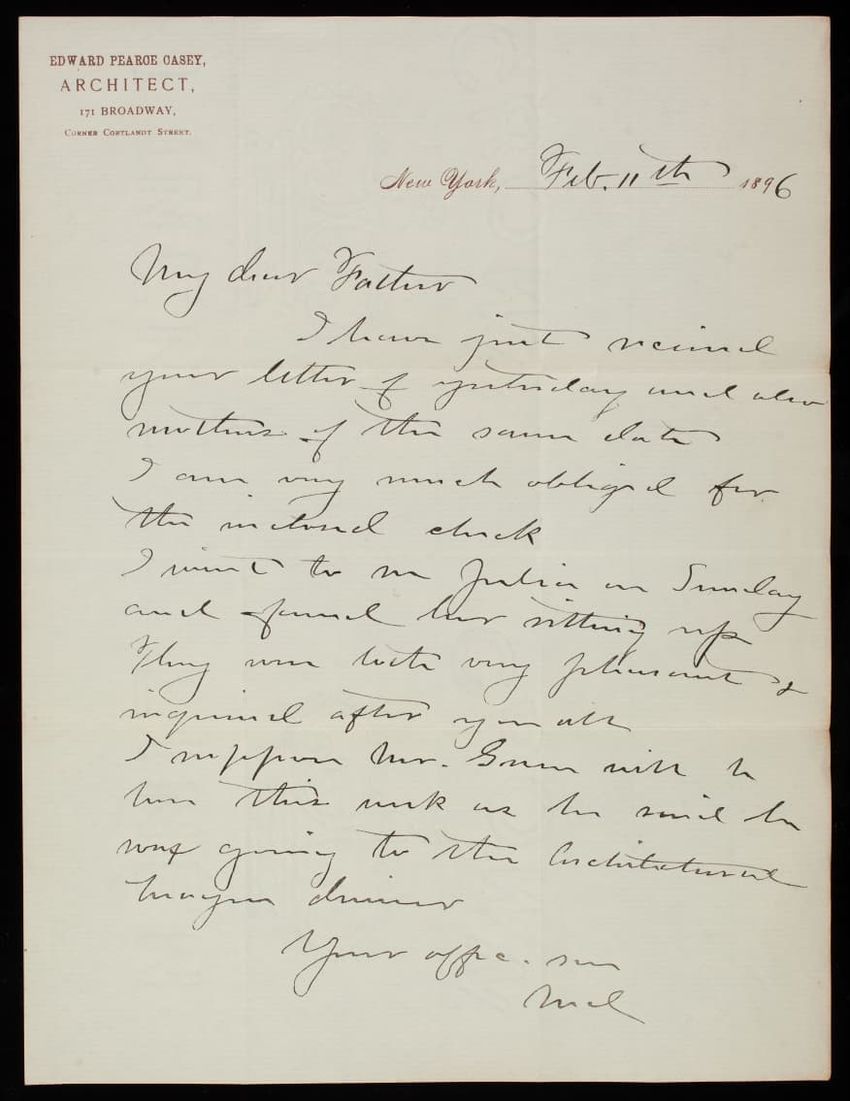 EDWARD PEARCE CASEY,
ARCHITECT,
171 BROADWAY,
CORNER CORTLANDT STREET.
New York, Feb. 11th 1896
My dear Father
I have just received
your letter of yesterday and also
mothers of the same date
I am very much obliged for
the inclosed check
I went to see Julia on Sunday
and found her sitting up
They were both very pleasant &
inquired after you all
I suppose Mr. Green will be
here this week as he said he
was going to the Architectural
League dinner
Your affec. son
Ned